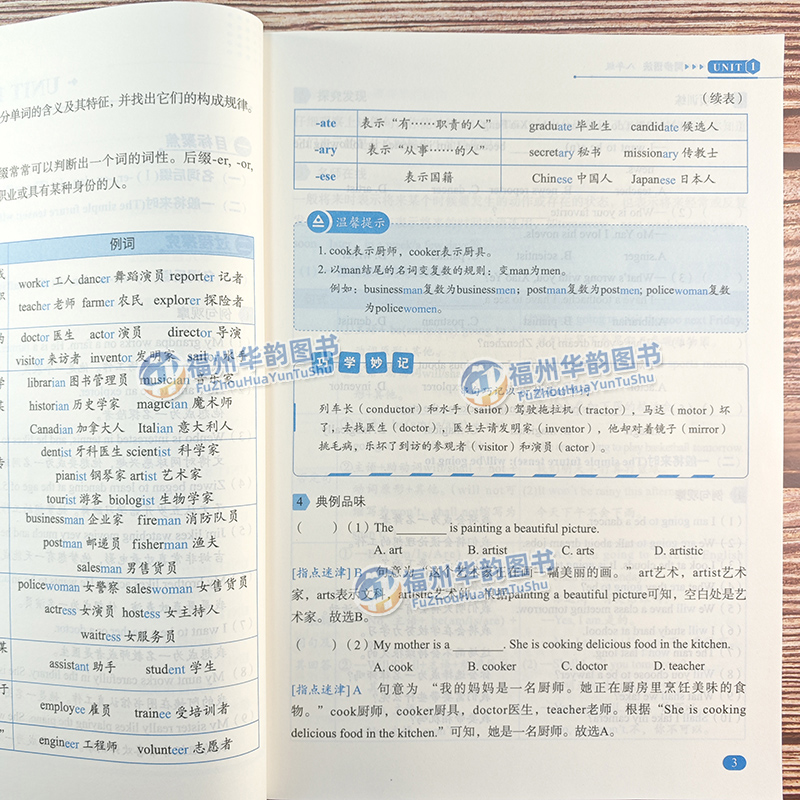 分单词的含义及其特征，并找出它们的构成规律。
缀常常可以判断出一个词的词性。后缀-er, -or,
职业或具有某种身份的人。
例词
worker 工人 dancer 舞蹈演员 reporter 记者
teacher 老师 farmer 农民 explorer 探险者
doctor 医生 actor 演员 director 导演
visitor 来访者 inventor 发明家
librarian 图书管理员 musician 音乐家
historian 历史学家 magician 魔术师
Canadian 加拿大人 Italian 意大利人
dentist 牙科医生 scientist 科学家
pianist 钢琴家 artist 艺术家
tourist 游客 biologist 生物学家
businessman 企业家 fireman 消防队员
postman 邮递员 fisherman 渔夫
salesman 男售货员
policewoman 女警察 saleswoman 女售货员
actress 女演员 hostess 女主持人
waitress 女服务员
assistant 助手 student 学生
employee 雇员 trainee 受培训者
engineer 工程师 volunteer 志愿者
UNIT 1
（续表）
-ate 表示“有……职责的人” graduate 毕业生 candidate 候选人
-ary 表示“从事……的人” secretary 秘书 missionary 传教士
-ese 表示国籍 Chinese 中国人 Japanese 日本人
温馨提示
1. cook表示厨师，cooker表示厨具。
2. 以man结尾的名词变复数的规则：变man为men。
例如：businessman复数为businessmen；postman复数为postmen；policewoman复数
为policewomen。
巧学妙记
列车长（conductor）和水手（sailor）驾驶拖拉机（tractor），马达（motor）坏
了，去找医生（doctor），医生去请发明家（inventor），他却对着镜子（mirror）
挑毛病，乐坏了到访的参观者（visitor）和演员（actor）。
4 典例品味
（ ）（1）The ______ is painting a beautiful picture.
A. art B. artist C. arts D. artistic
[指点迷津] B 句意为“这个艺术家正在画一幅美丽的画。”art艺术，artist艺术
家，arts表示文科，artistic艺术的。根据painting a beautiful picture可知，空白处是艺
术家。故选B。
（ ）（2）My mother is a ________. She is cooking delicious food in the kitchen.
A. cook B. cooker C. doctor D. teacher
[指点迷津] A 句意为 “我的妈妈是一名厨师。她正在厨房里烹饪美味的食
物。”cook厨师，cooker厨具，doctor医生，teacher老师。根据“She is cooking
delicious food in the kitchen.”可知，她是一名厨师。故选A。
3
福州华韵图书
FuZhouHuaYunTuShu
福州华韵图书
FuZhouHuaYunTuShu
福州华韵图书
FuZhouHuaYunTuShu